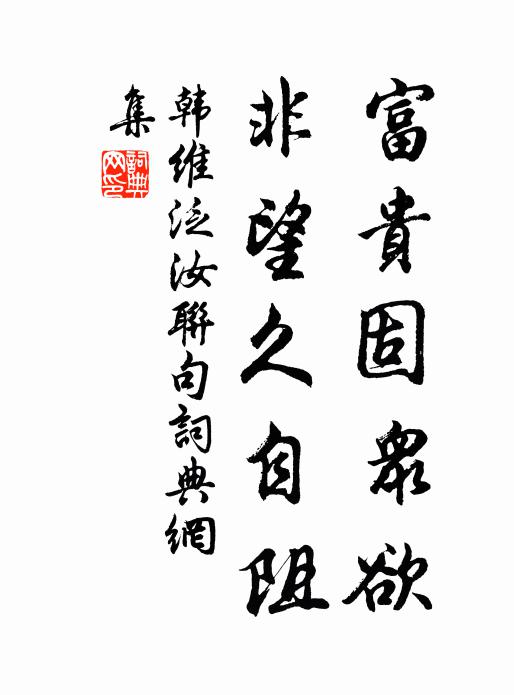 富貴固衆欲
非望久自阻
韩維泛汝聯句詞典網
集
詞典
网印